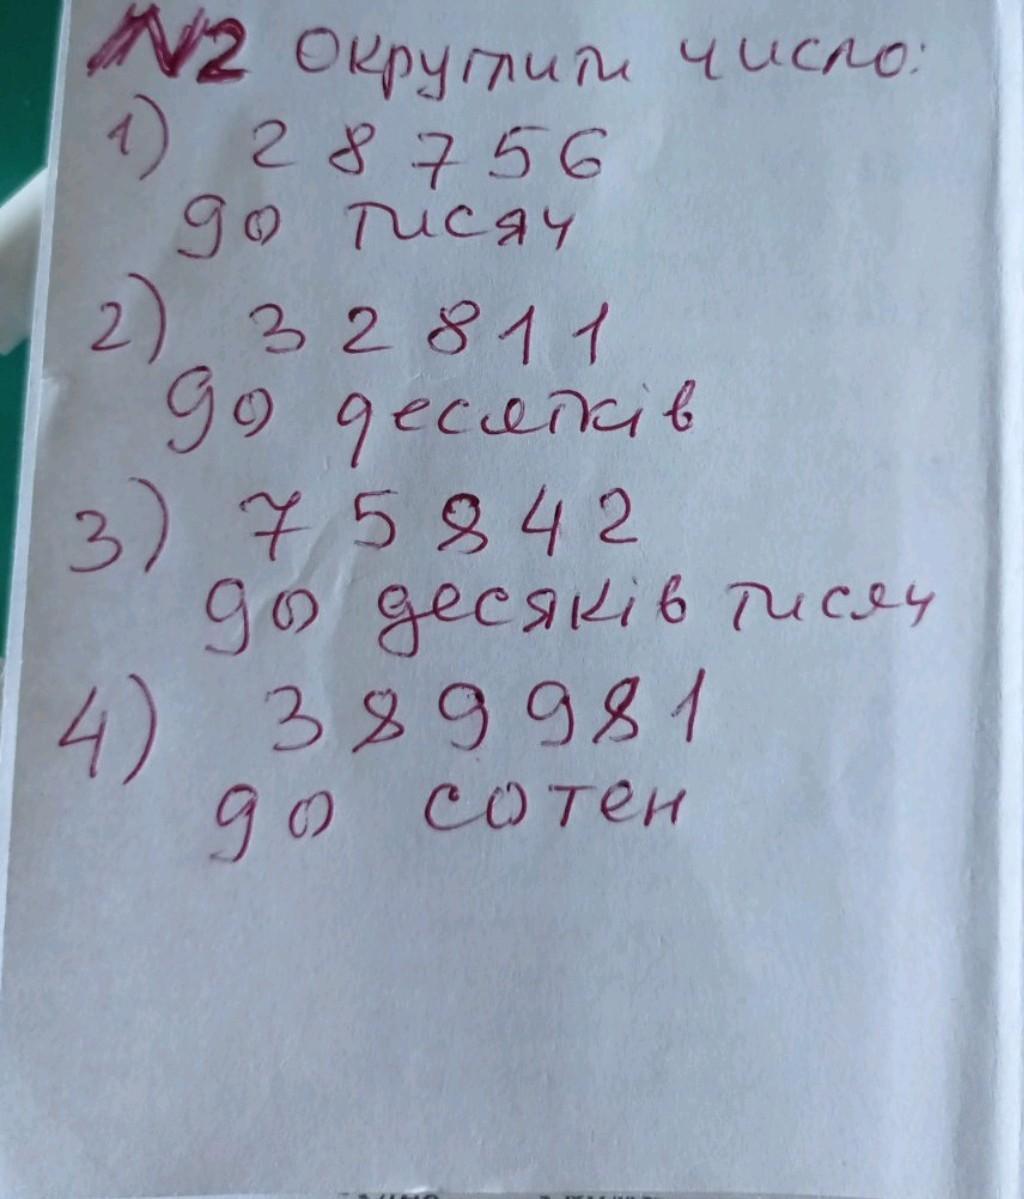 №2 Округлити число:
1) 28756
до тисяч
2) 32811
до десятків
3) 75842
до десяків тисяч
4) 389981
до сотен